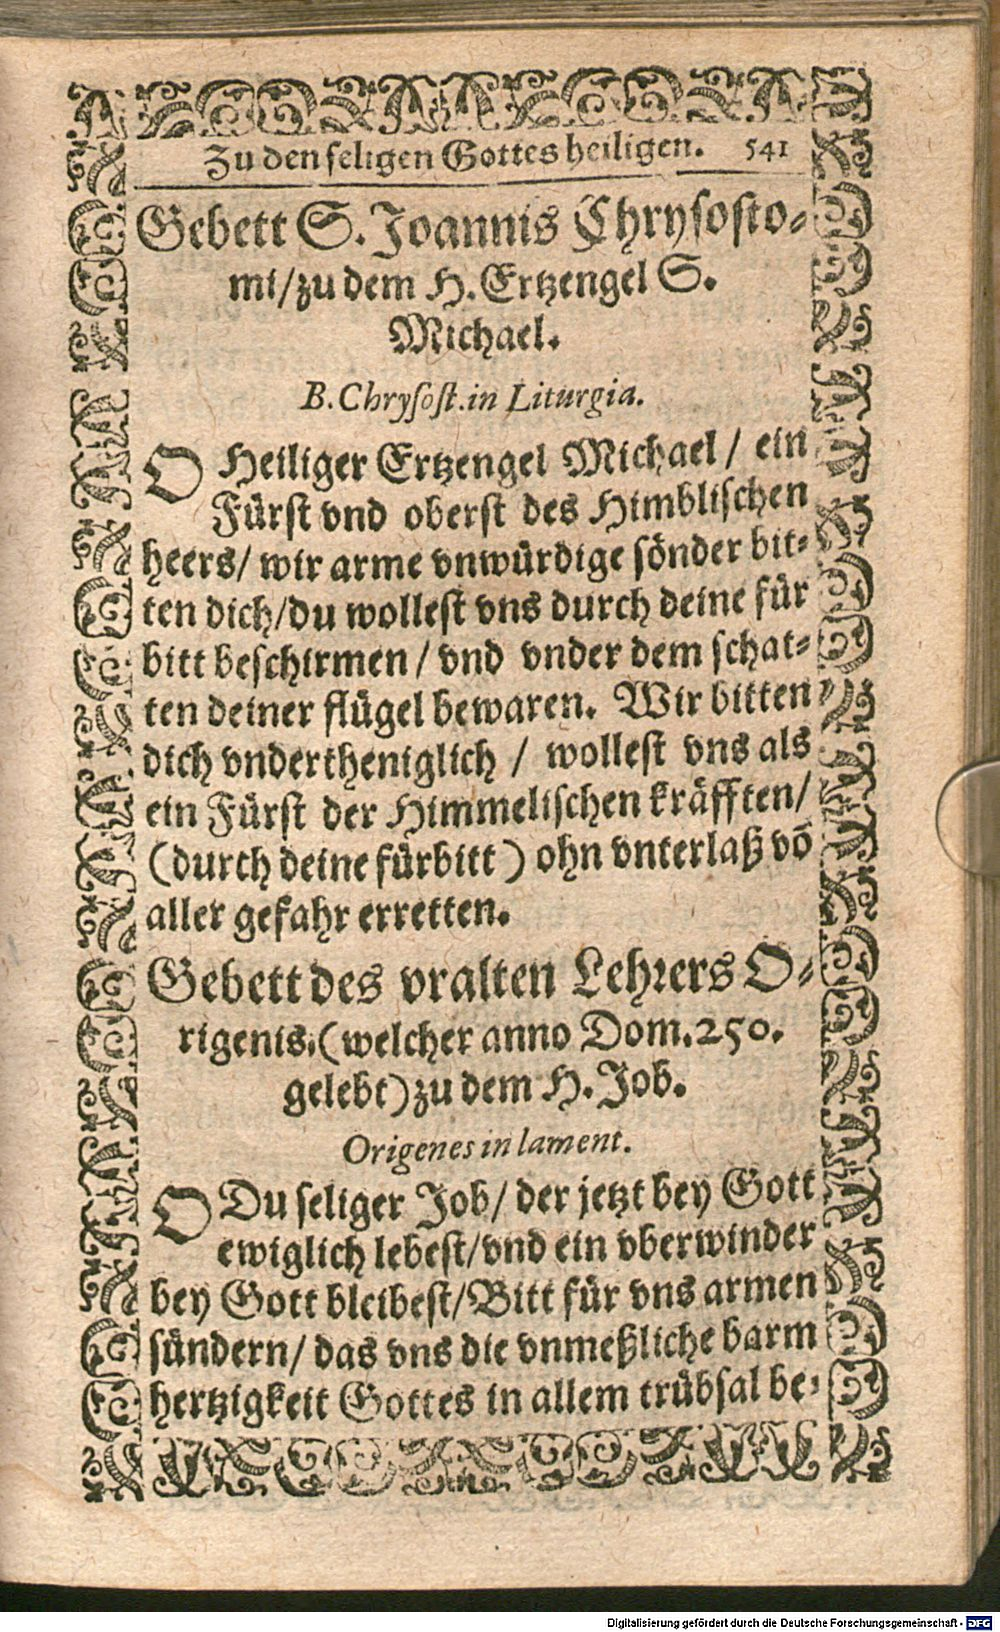 Zu den seligen Gottes heiligen. 541
Gebett S. Joannis Chrysosto-
mi/zu dem H. Ertzengel S.
Michael.
B. Chrysost. in Liturgia.
O Heiliger Ertzengel Michael / ein
Fürst vnd oberst des Himblischen
heers/ wir arme vnwürdige sönder bit-
ten dich/du wollest vns durch deine für
bitt beschirmen / vnd vnder dem schat-
ten deiner flügel bewaren. Wir bitten
dich vndertheniglich / wollest vns als
ein Fürst der Himmelischen kräfften/
(durch deine fürbitt) ohn vnterlaß võ
aller gefahr erretten.
Gebett des vralten Lehrers O-
rigenis.(welcher anno Dom. 250.
gelebt) zu dem H. Job.
Origenes in lament.
O Du seliger Job/ der jetzt bey Gott
ewiglich lebest/vnd ein vberwinder
bey Gott bleibest/Bitt für vns armen
sündern/ das vns die vnmeßliche barm
hertzigkeit Gottes in allem trübsal be-
Digitalisierung gefördert durch die Deutsche Forschungsgemeinschaft - DFG